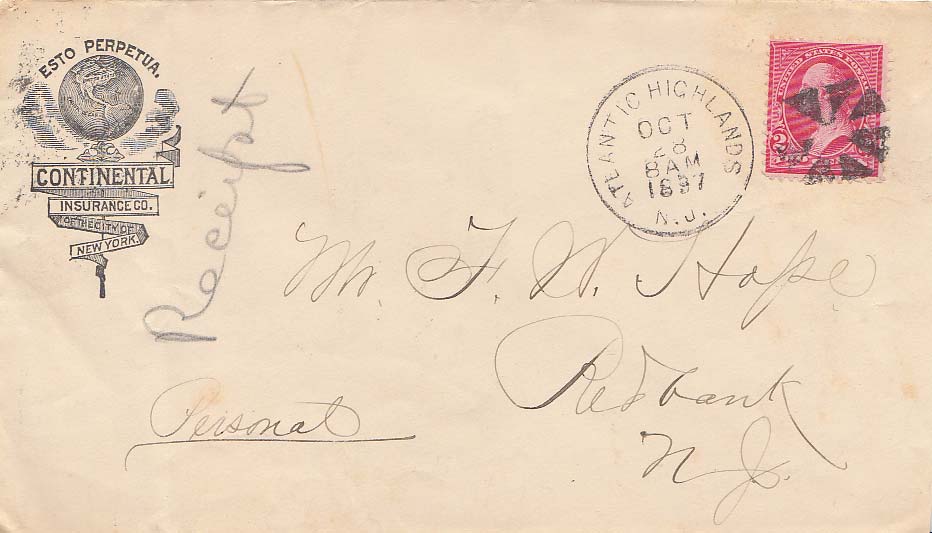 ESTO PERPETUA.
CONTINENTAL
INSURANCE CO.
OF THE CITY OF
NEW YORK.
Receipt
ATLANTIC HIGHLANDS
OCT
28
8 AM
1897
N.J.
UNITED STATES POSTAGE
2
Mr. F. W. Hope
Redbank
N. J.
Personal